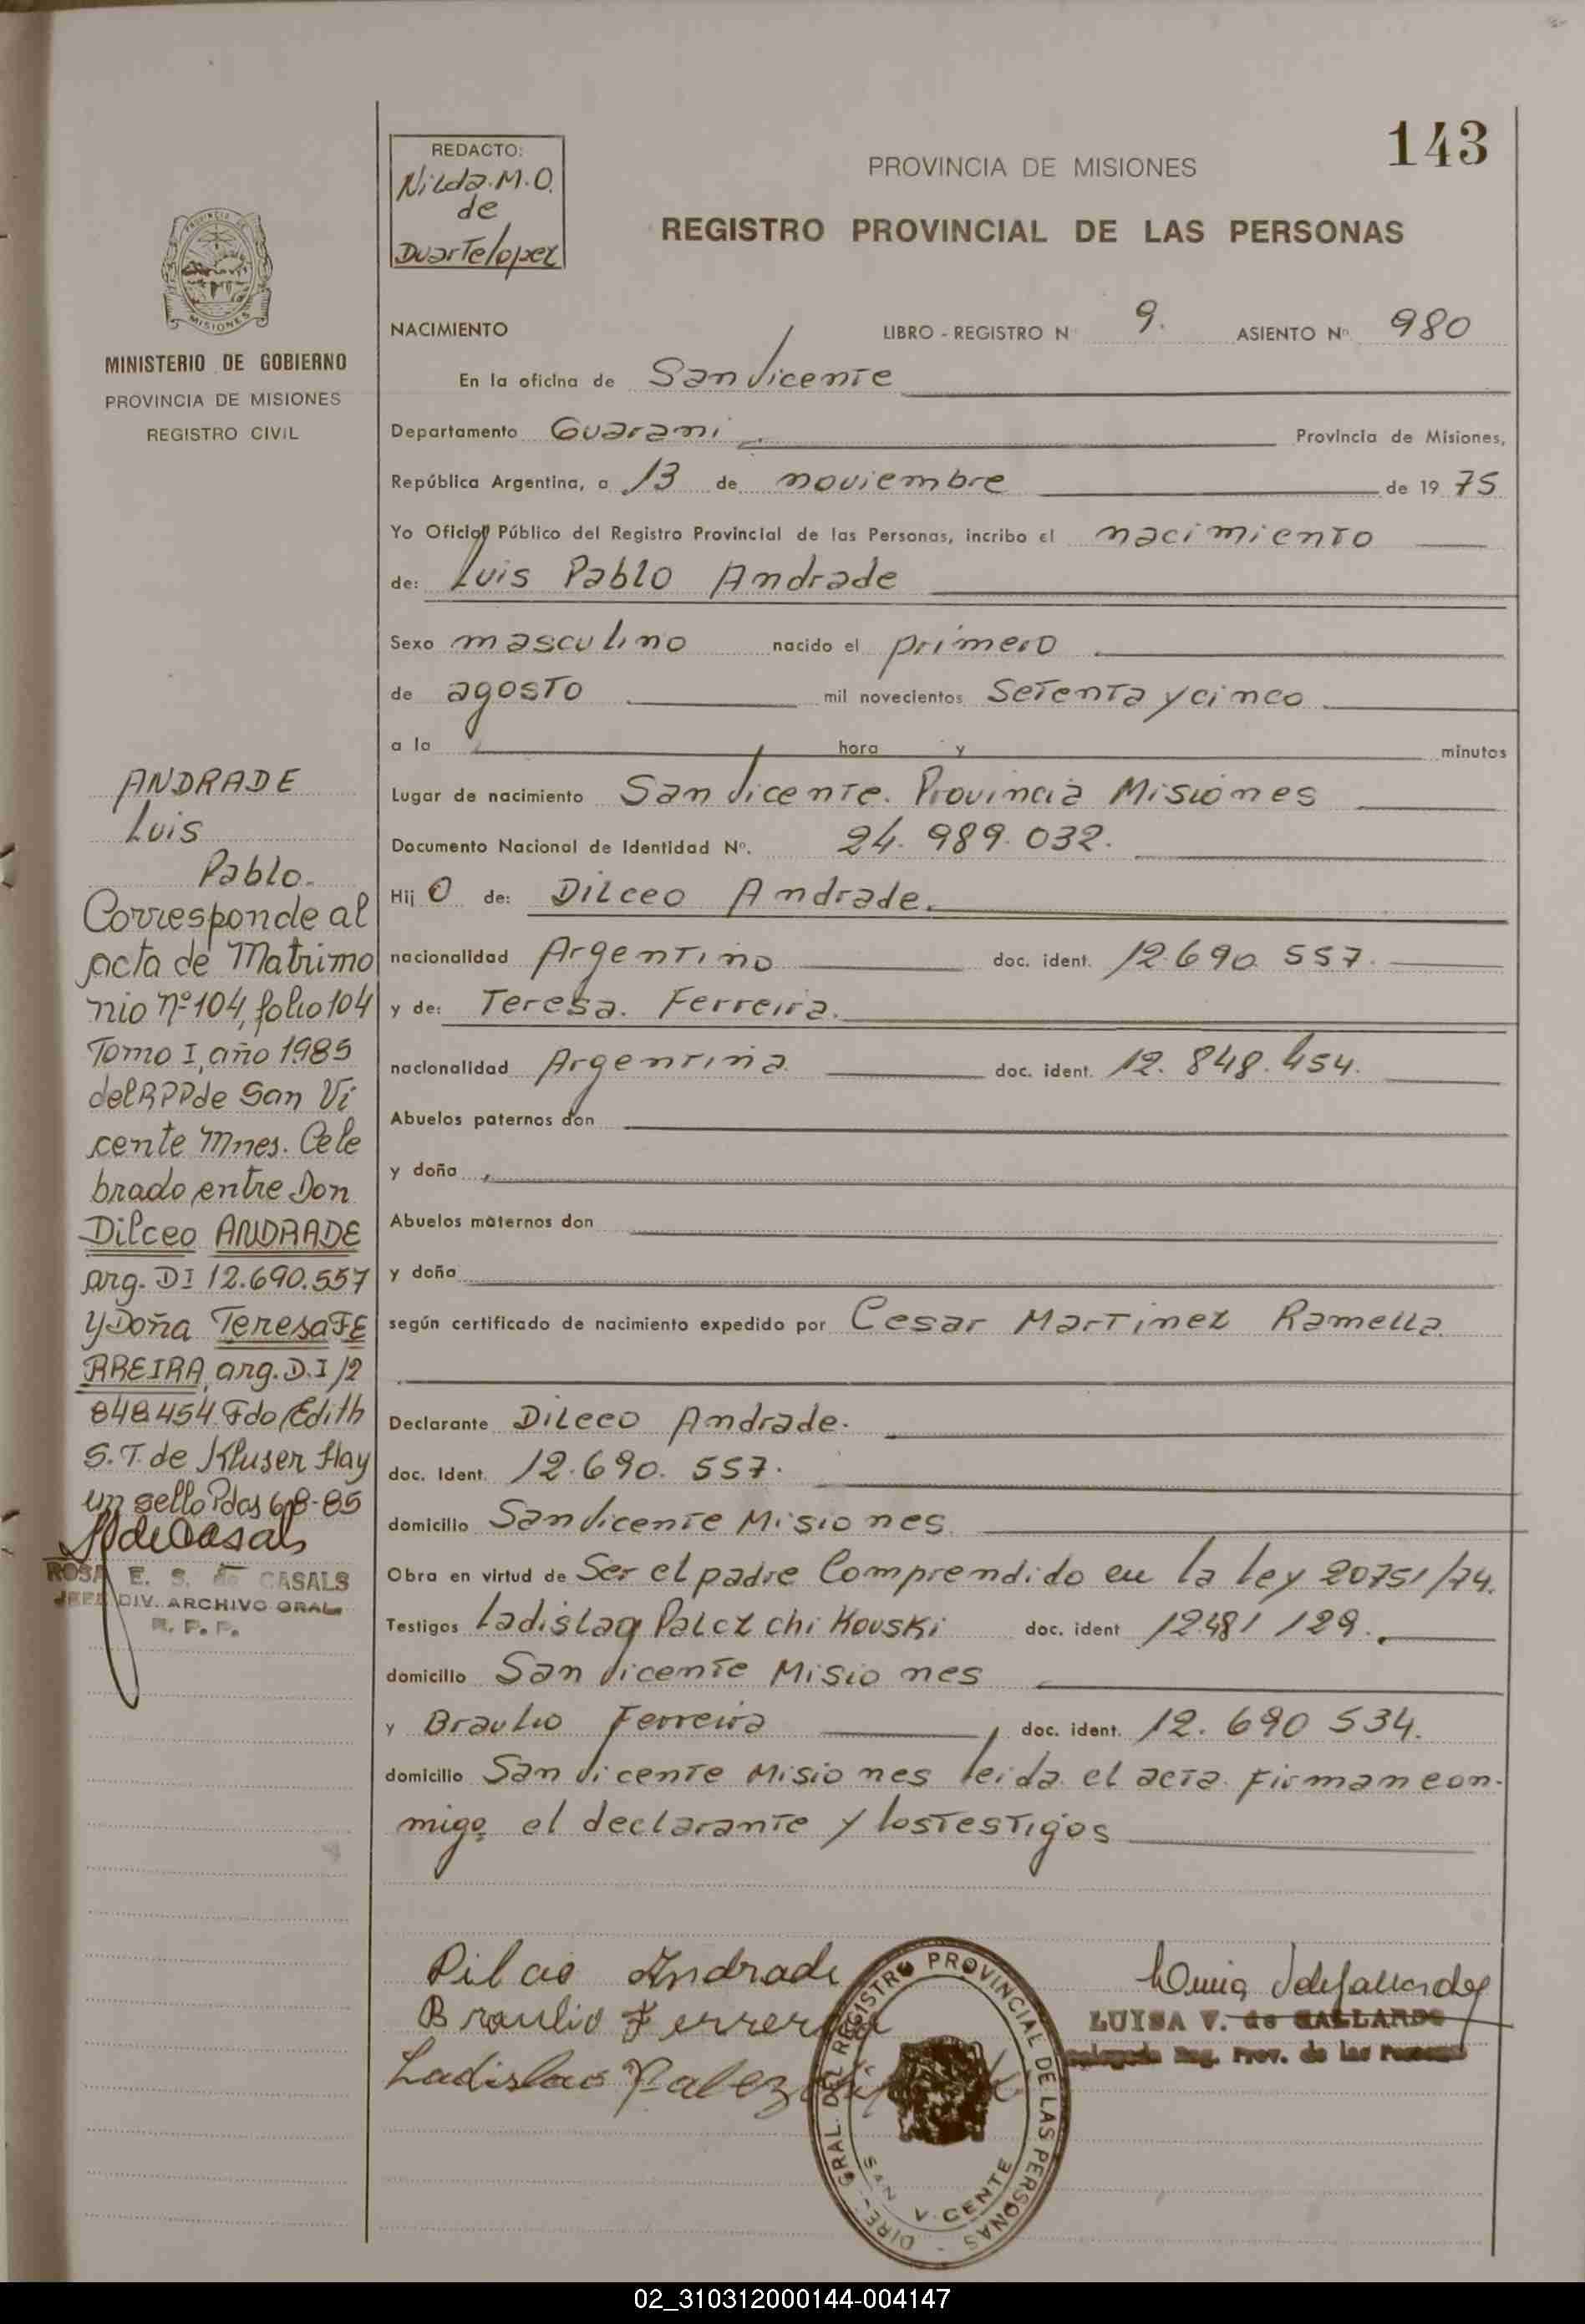 143
REDACTO:
Nilda.M.O.
de
Duartelopez
PROVINCIA DE MISIONES
REGISTRO PROVINCIAL DE LAS PERSONAS
MISIONES
MINISTERIO DE GOBIERNO
PROVINCIA DE MISIONES
REGISTRO CIVIL
NACIMIENTO LIBRO - REGISTRO N 9. ASIENTO Nº 980
En la oficina de San Vicente
Departamento Guarani Provincia de Misiones,
República Argentina, a 13 de noviembre de 19 75
Yo Oficial Público del Registro Provincial de las Personas, incribo el nacimiento
de: Luis Pablo Andrade
Sexo masculino nacido el primero
de agosto mil novecientos Setenta y cinco
a la hora y minutos
Lugar de nacimiento San Vicente. Provincia Misiones
Documento Nacional de Identidad Nº. 24.989.032.
Hij O de: Dilceo Andrade.
nacionalidad Argentino doc. ident. 12.690 557.
y de: Teresa. Ferreira.
nacionalidad Argentina doc. ident. 12.848.454.
Abuelos paternos don
y doña
Abuelos maternos don
y doña
según certificado de nacimiento expedido por Cesar Martinez Ramella
Declarante Dilceo Andrade.
doc. Ident. 12.690.557.
domicilio San Vicente Misiones
Obra en virtud de Ser el padre Comprendido en la ley 20751/74.
Testigos Ladislao Palczchikouski doc. ident 12481 129.
domicilio San Vicente Misiones
y Braulio Ferreira doc. ident. 12.690 534.
domicilio San Vicente Misiones leida el acta firman con-
migo el declarante y los testigos
ANDRADE
Luis
Pablo.
Corresponde al
acta de Matrimo
nio nº 104, folio 104
Tomo I, año 1985
del RPP de San Vi
cente Mnes. Cele
brado entre Don
Dilceo ANDRADE
arg. DI 12.690.557
y Doña Teresa FE
RREIRA, arg. D.I 12
848454 Fdo Edith
S.T. de Kluser Hay
un sello Pdas 6-8-85
ROSA E. S. de CASALS
JEFE DIV. ARCHIVO GRAL.
R. P. P.
Dilceo Andrade
Braulio Ferreira
Ladislao
LUISA V. de GALLARDO
Delegada Reg. Prov. de las Personas
DIRE. GRAL. DEL REGISTRO PROVINCIAL DE LAS PERSONAS
SAN VICENTE
02_310312000144-004147